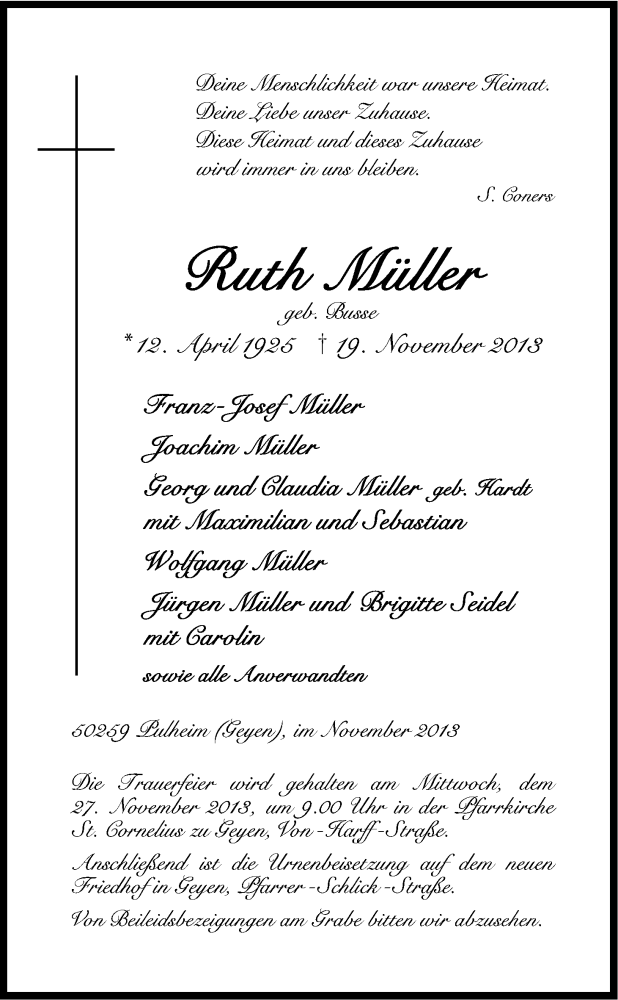 Deine Menschlichkeit war unsere Heimat.
Deine Liebe unser Zuhause.
Diese Heimat und dieses Zuhause
wird immer in uns bleiben.
S. Coners
Ruth Müller
geb. Busse
* 12. April 1925 † 19. November 2013
Franz-Josef Müller
Joachim Müller
Georg und Claudia Müller geb. Hardt
mit Maximilian und Sebastian
Wolfgang Müller
Jürgen Müller und Brigitte Seidel
mit Carolin
sowie alle Anverwandten
50259 Pulheim (Geyen), im November 2013
Die Trauerfeier wird gehalten am Mittwoch, dem
27. November 2013, um 9.00 Uhr in der Pfarrkirche
St. Cornelius zu Geyen, Von-Harff-Straße.
Anschließend ist die Urnenbeisetzung auf dem neuen
Friedhof in Geyen, Pfarrer-Schlick-Straße.
Von Beileidsbezeigungen am Grabe bitten wir abzusehen.